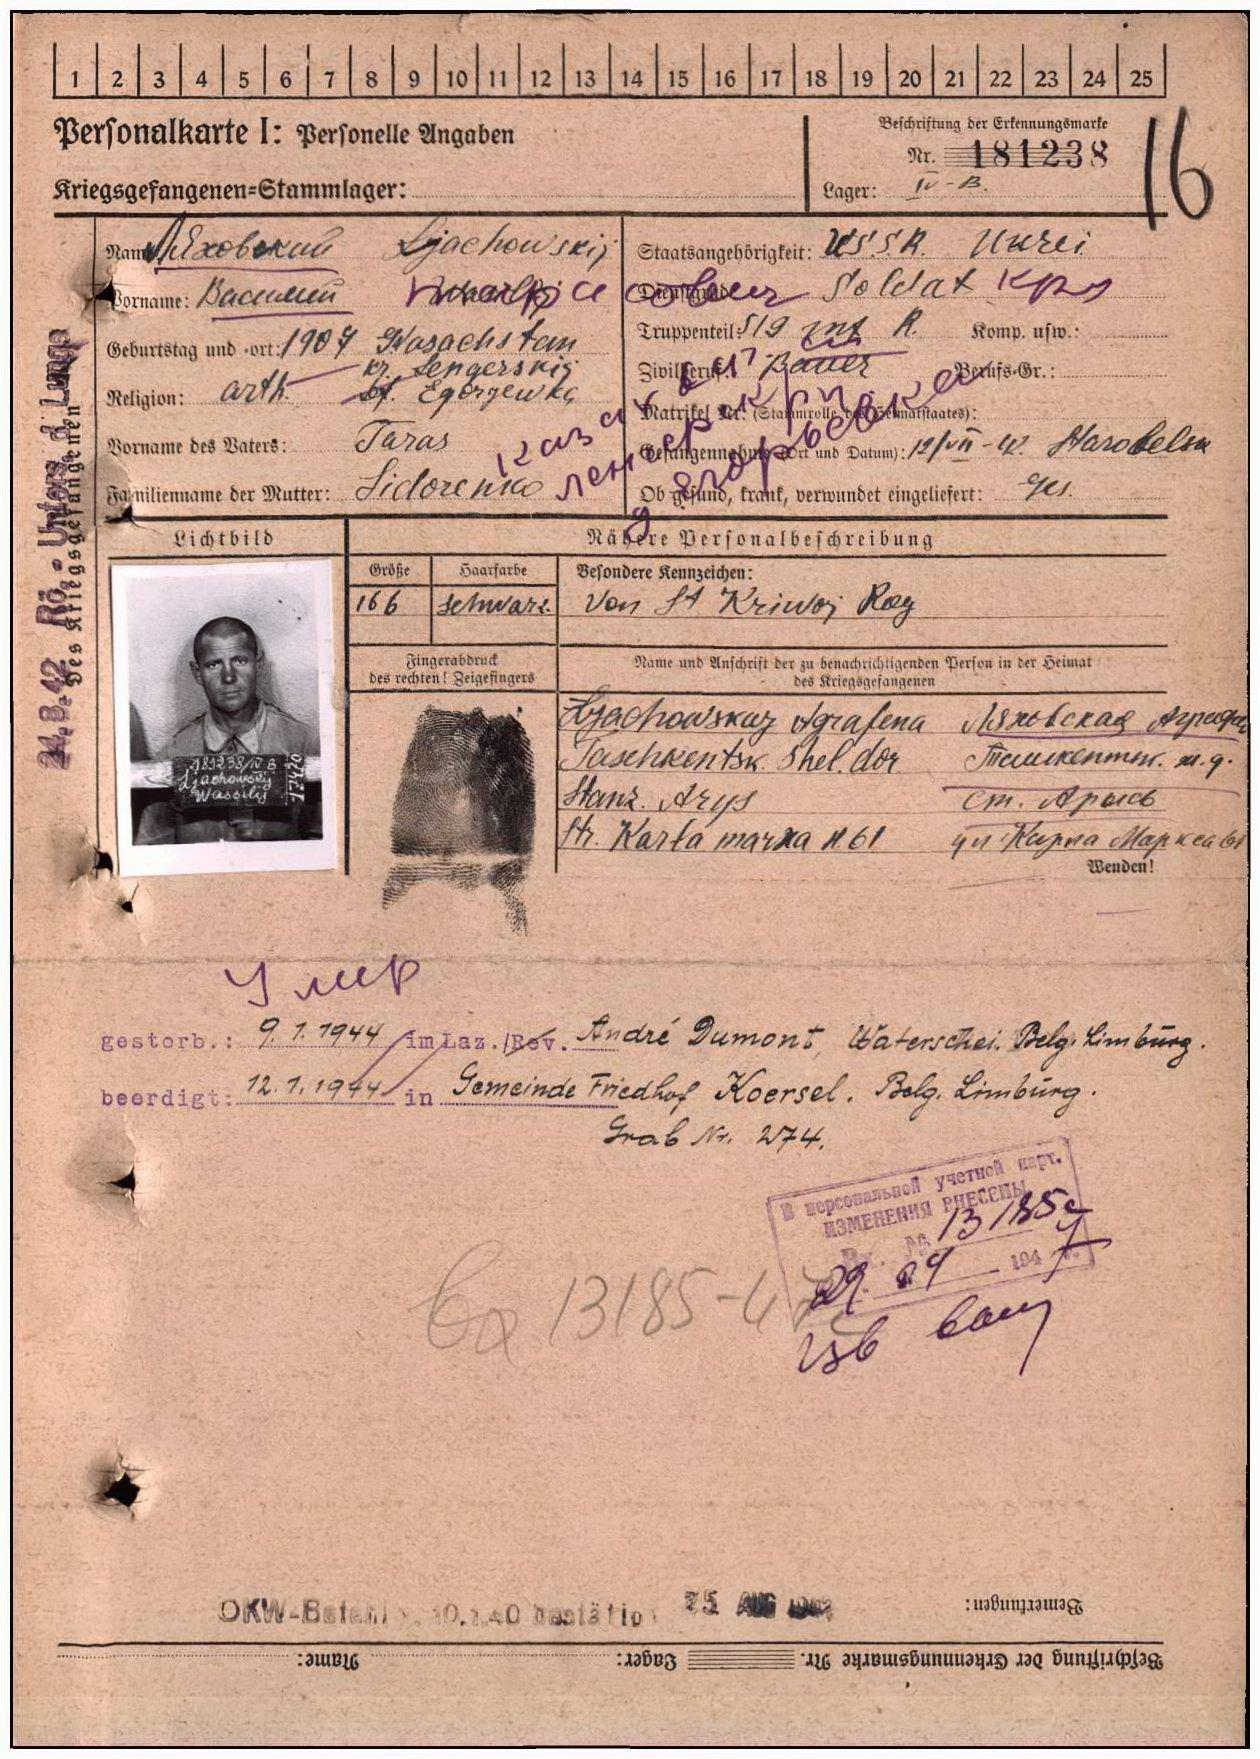 1 2 3 4 5 6 7 8 9 10 11 12 13 14 15 16 17 18 19 20 21 22 23 24 25
Personalkarte I: Personelle Angaben
Beschriftung der Erkennungsmarke
Nr. 181238
16
Kriegsgefangenen-Stammlager:
Lager: IV-B.
Name: Ляховский Ljachowskij
Vorname: Василий
Тарасович
Geburtstag und -ort: 1907 Kasachstan
kr. Lengerskij
Religion: orth. Egorjewka
Vorname des Vaters: Taras
Familienname der Mutter: Sidorenko
Staatsangehörigkeit: U.S.S.R.
Dienstgrad: Soldat кра
Truppenteil: 519 inf R. Komp. usw.:
Zivilberuf: Bauer Berufs-Gr.:
Matrikel Nr. (Stammrolle des Heimatstaates):
Gefangennahme (Ort und Datum): 12/VII-42. Starobelsk
Ob gesund, krank, verwundet eingeliefert: ges.
казах
Ленгерск р/н
д Егорьевка
24.8.42 Rö.- Unters. 3. Lunge
des Kriegsgefangenen
Lichtbild
Nähere Personalbeschreibung
Größe
Haarfarbe
Besondere Kennzeichen:
166
schwarz.
Von St Kriwoj Rog
Fingerabdruck
des rechten! Zeigefingers
Name und Anschrift der zu benachrichtigenden Person in der Heimat
des Kriegsgefangenen
181238/IV B
Ljachowskij
Wassilij
17420
Ljachowskaj Agrafena Ляховская Аграфе
Taschkentsk. Shel. dor Ташкентск. ж.д.
Stanz. Arys ст. Арысь
Str. Karla marxa N 61 ул. Карла Маркса 61
Wenden!
Умер
gestorb.: 9.1.1944 im Laz./Rev. André Dumont, Waterschei. Belg. Limburg.
beerdigt: 12.1.1944 in Gemeinde Friedhof Koersel. Belg. Limburg.
Grab Nr. 274.
В персональной учетной карт.
ИЗМЕНЕНИЯ ВНЕСЕНЫ
Вх. № 13185с
29. 04 1947 г.
Вх 13185-47
OKW-Befehl 40 bestätigt 25. AUG 1942
Bemerkungen:
Beschriftung der Erkennungsmarke Nr. Lager: Name: